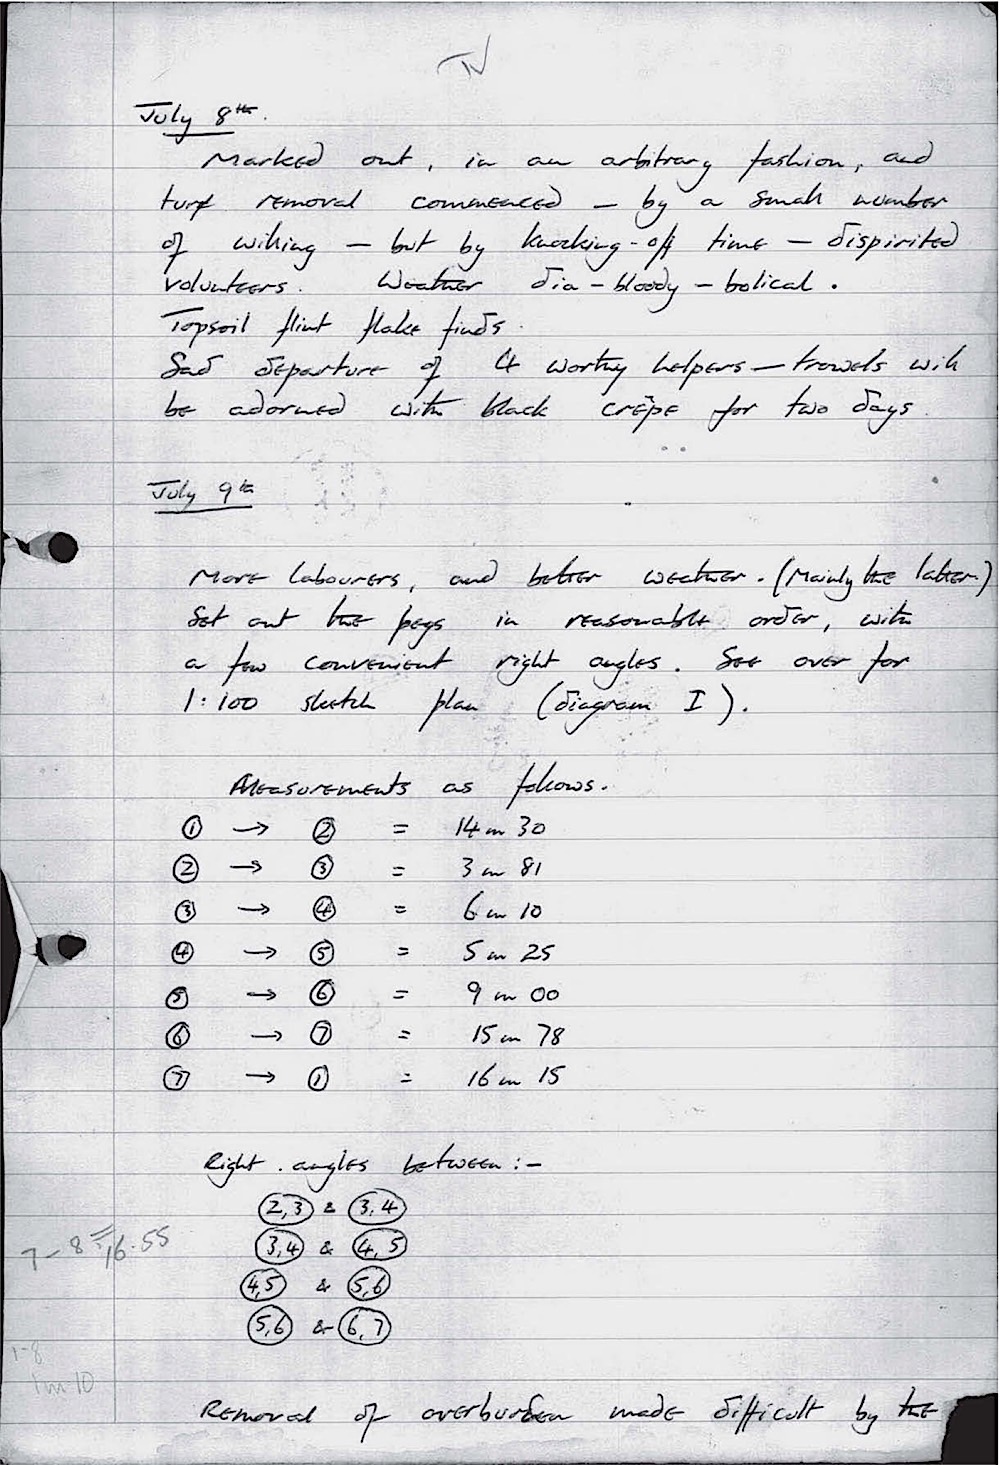 IV
July 8th.
Marked out, in an arbitrary fashion, and
turf removal commenced - by a small number
of willing - but by knocking-off time - dispirited
volunteers. Weather dia-bloody-bolical.
Topsoil flint flake finds.
Sad departure of 4 worthy helpers - trowels will
be adorned with black crêpe for two days.
July 9th
More labourers, and better weather. (Mainly the latter.)
Set out the pegs in reasonable order, with
a few convenient right angles. See over for
1:100 sketch plan (diagram I).
Measurements as follows.
① → ② = 14 m 30
② → ③ = 3 m 81
③ → ④ = 6 m 10
④ → ⑤ = 5 m 25
⑤ → ⑥ = 9 m 00
⑥ → ⑦ = 15 m 78
⑦ → ① = 16 m 15
Right angles between:-
2,3 & 3,4
3,4 & 4,5
7-8 = 16.55
4,5 & 5,6
5,6 & 6,7
1-8
1m10
Removal of overburden made difficult by the